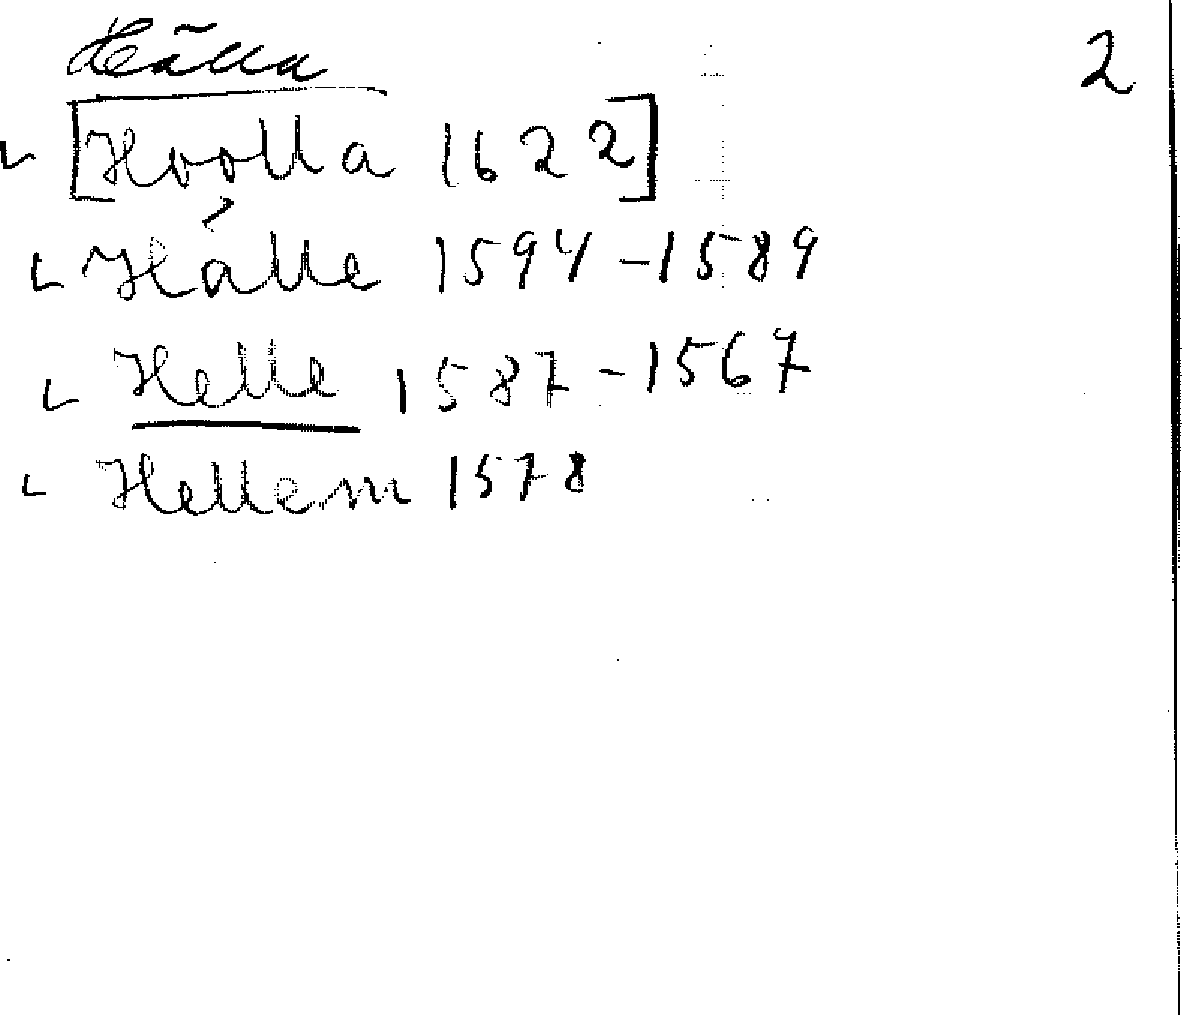 Hälla 2
[Hoolla 1622]
Hálle 1594-1589
Helle 1587-1567
Hellem 1578